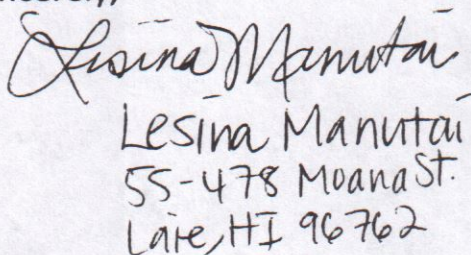 Lesina Manutai
Lesina Manutai
55-478 Moana St.
Laie, HI 96762